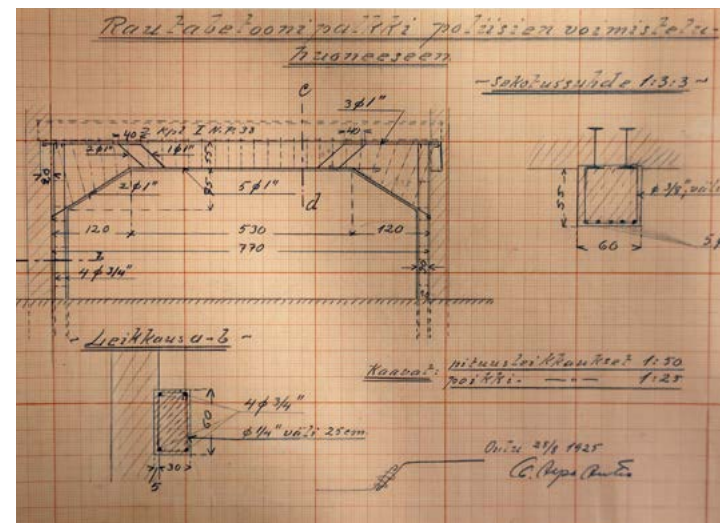 Rautabetoonipalkki poliisien voimistelu-
huoneeseen
- Sekotussuhde 1:3:3 -
c
3φ1"
40
2 kpl I N.P. 38
40
2φ1"
1φ1"
55
20
2φ1"
75
5φ1"
d
120
530
120
770
b
4φ3/4"
55
φ3/8", väli
60
- Leikkaus a-b -
Kaavat: pituusleikkaukset 1:50
poikki- —"— 1:25
4φ3/4"
60
φ1/4" väli 25cm
30
5
Oulu 25/8 1925